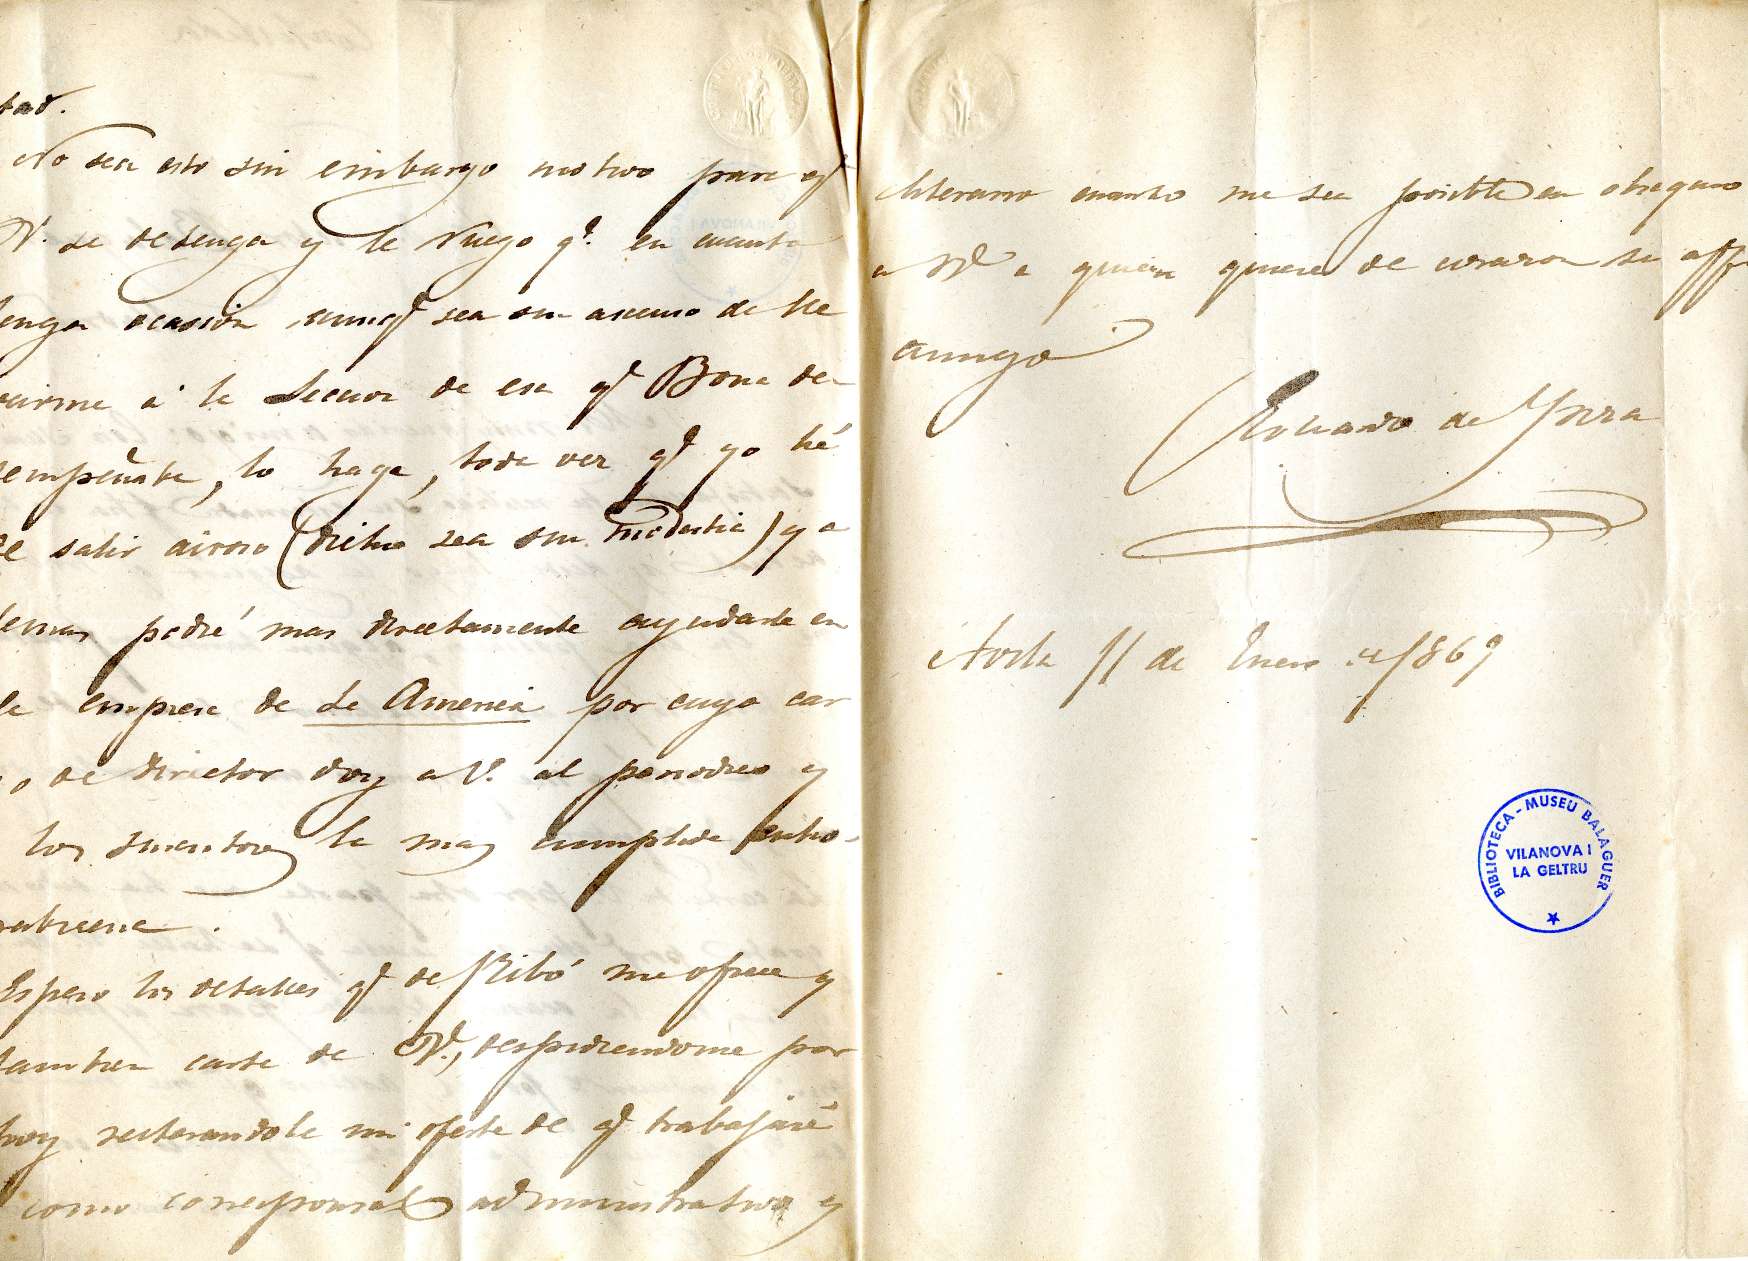 tad.
No sea esto sin embargo motivo para qe
V. se detenga y le ruego qe. en cuanta
enga ocasion, aunqe sea sin ascenso de lle
varme á la Seccion de esa qe Bona de
empeñaba, lo haga, toda vez qe yo hé
de salir airoso (dicho sea sin modestia) y a
demas podré mas directamente ayudarle en
la empresa de La America por cuyo car
o de director doy a V. al periodico y
los
la mas cumplida enho-
rabuena.
Espero los detalles qe de Ribó me ofrece y
tambien carta de V., despidiendome por
hoy reiterandole mi oferta de qe trabajaré
como corresponsal administrativo y
literario cuanto me sea posible en obsequio
a Vd a quien quiere de corazon su affo
amigo
Eduardo de
11 de Enero de 1869
BIBLIOTECA - MUSEU BALAGUER
VILANOVA I
LA GELTRU